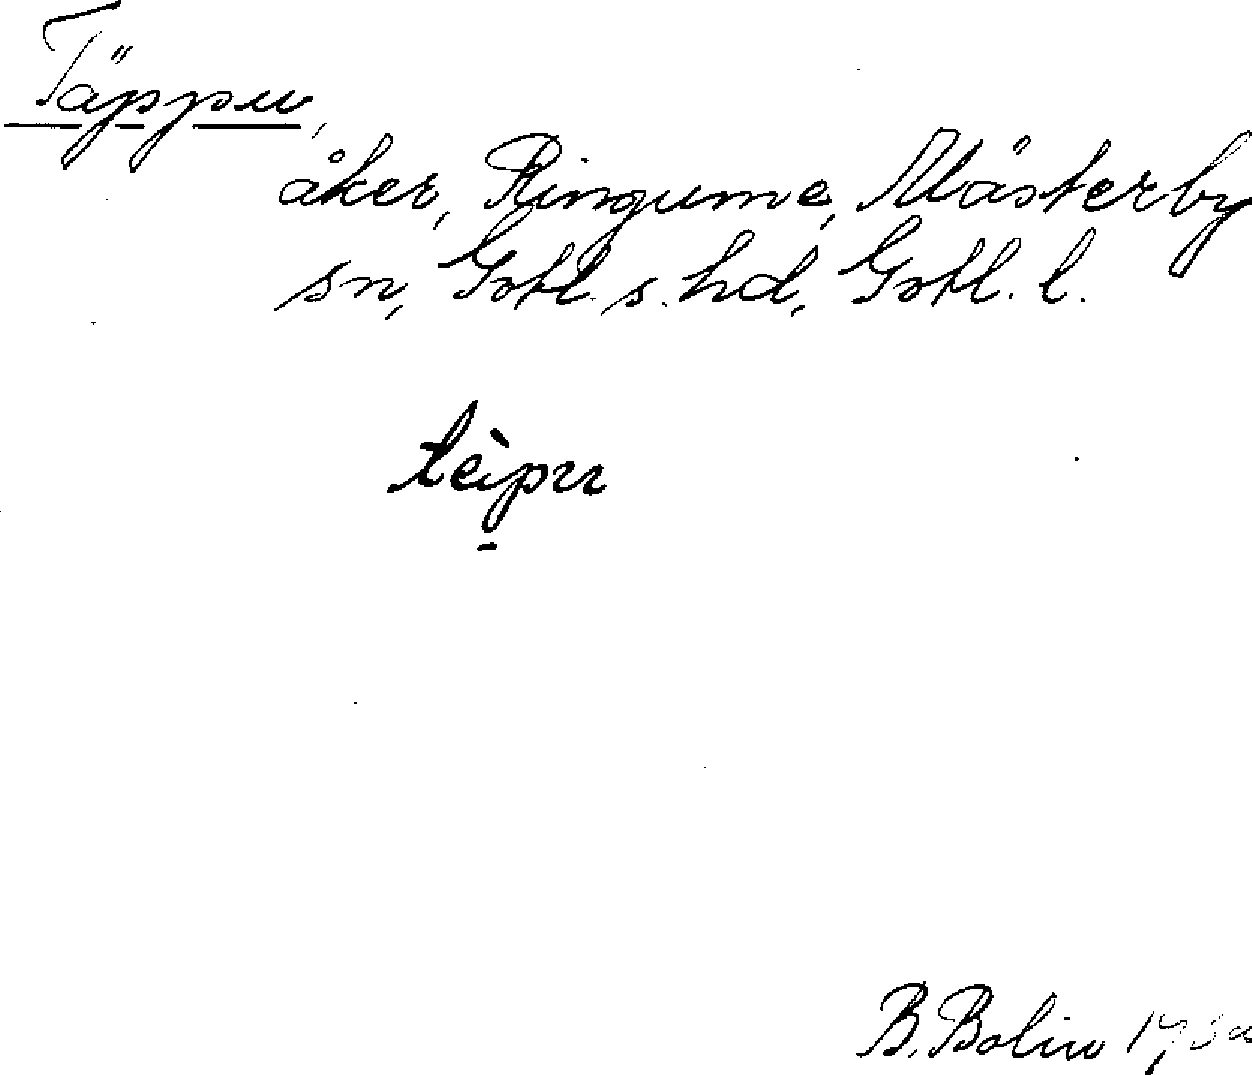 Täppu,
åker, Ringume, Mästerby
sn, Gotl. s. hd, Gotl. l.
tèpu
B. Bolin